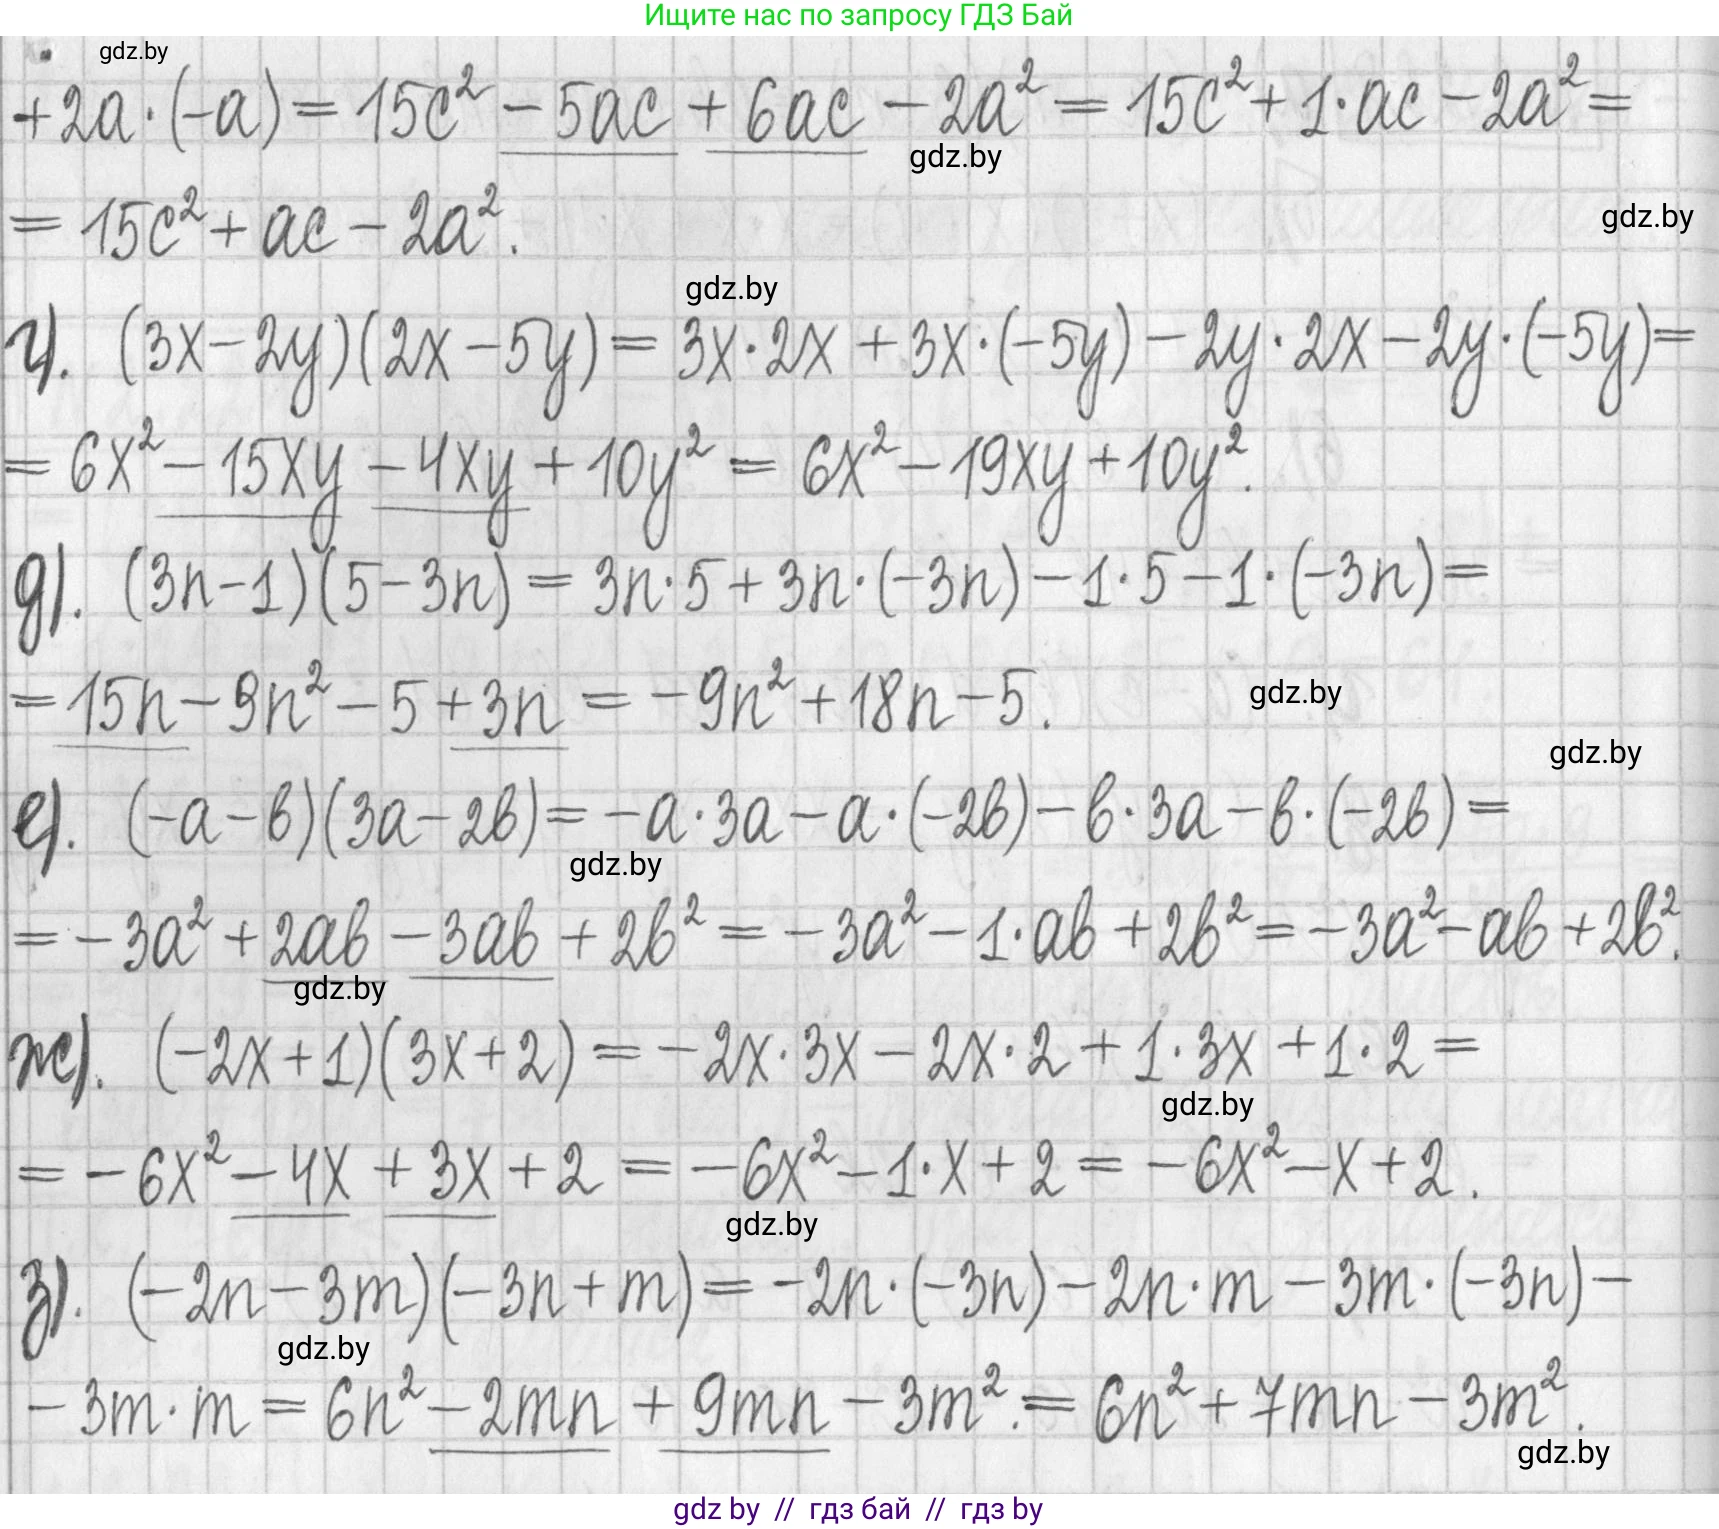 Ищите нас по запросу ГДЗ Бай
gdz.by
+2a·(-a) = 15c² - 5ac + 6ac - 2a² = 15c² + 1·ac - 2a² =
gdz.by
= 15c² + ac - 2a².
gdz.by
gdz.by
г). (3x - 2y)(2x - 5y) = 3x·2x + 3x·(-5y) - 2y·2x - 2y·(-5y) =
= 6x² - 15xy - 4xy + 10y² = 6x² - 19xy + 10y².
д). (3n - 1)(5 - 3n) = 3n·5 + 3n·(-3n) - 1·5 - 1·(-3n) =
= 15n - 9n² - 5 + 3n = -9n² + 18n - 5.
gdz.by
gdz.by
е). (-a - b)(3a - 2b) = -a·3a - a·(-2b) - b·3a - b·(-2b) =
gdz.by
= -3a² + 2ab - 3ab + 2b² = -3a² - 1·ab + 2b² = -3a² - ab + 2b².
gdz.by
ж). (-2x + 1)(3x + 2) = -2x·3x - 2x·2 + 1·3x + 1·2 =
gdz.by
= -6x² - 4x + 3x + 2 = -6x² - 1·x + 2 = -6x² - x + 2.
gdz.by
з). (-2n - 3m)(-3n + m) = -2n·(-3n) - 2n·m - 3m·(-3n) -
gdz.by
- 3m·m = 6n² - 2mn + 9mn - 3m². = 6n² + 7mn - 3m².
gdz.by
gdz by // гдз бай // гдз by